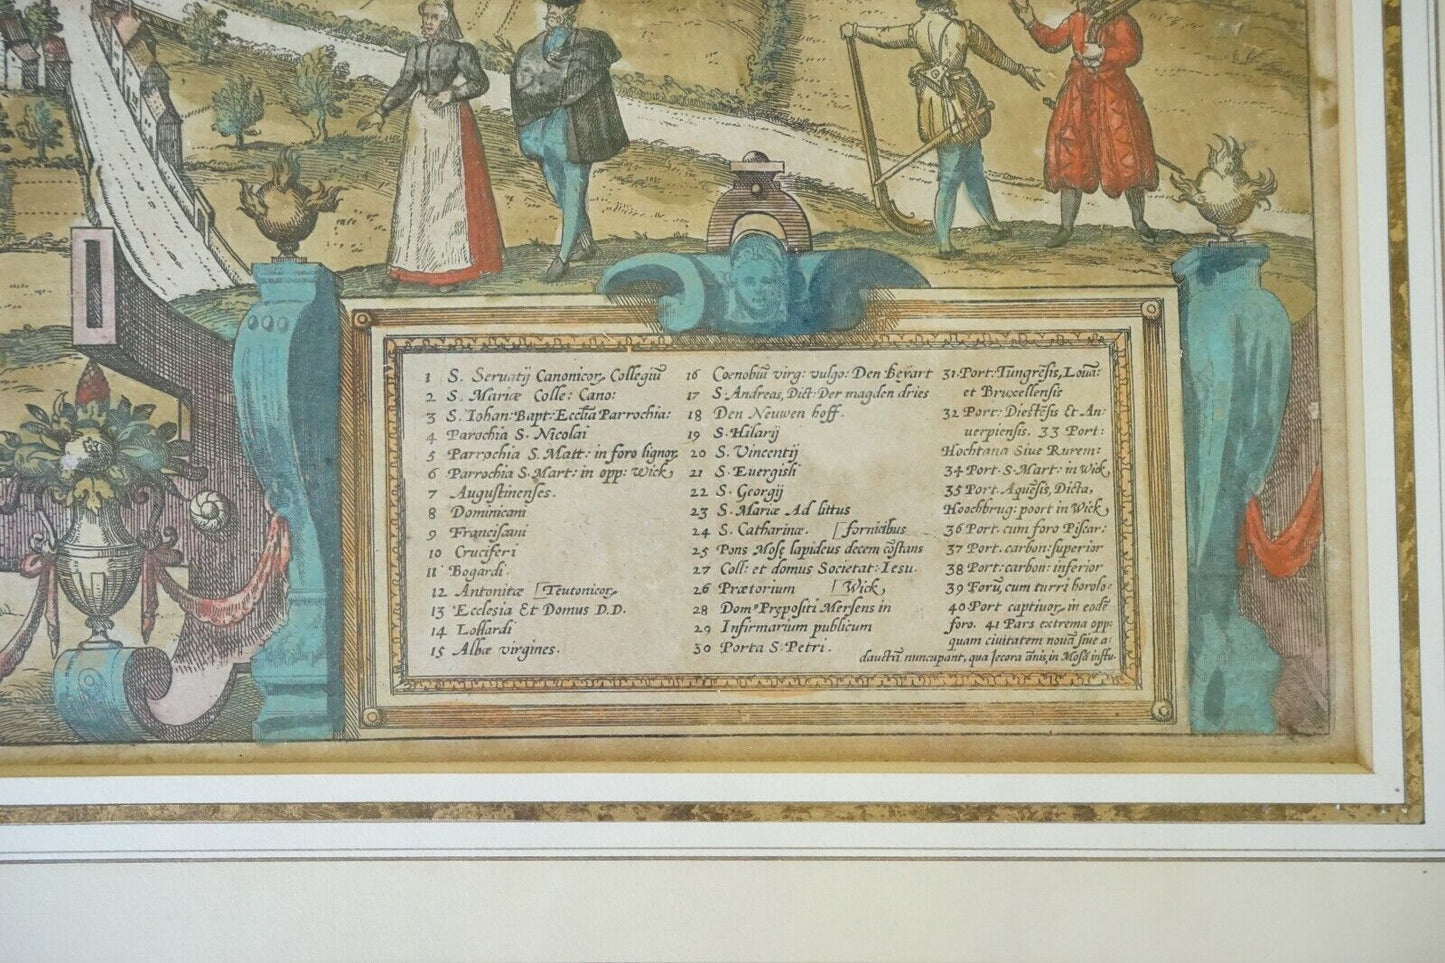 1 S. Servatij Canonicor. Collegiū
2 S. Mariæ Colle: Cano:
3 S. Iohan: Bapt: Ecclīa Parrochia:
4 Parochia S. Nicolai
5 Parrochia S. Matt: in foro lignor.
6 Parrochia S. Mart: in opp: Wick,
7 Augustinenses.
8 Dominicani
9 Franciscani
10 Cruciferi
11 Bogardi.
12 Antonitæ [Teutonicor,
13 Ecclesia Et Domus D.D.
14 Lollardi
15 Albæ virgines.
16 Coenobiū virg: vulgo: Den Beyart
17 S. Andreas, Dict: Der magden dries
18 Den Neuwen hoff.
19 S. Hilarij
20 S. Vincentij
21 S. Euergisli
22 S. Georgij
23 S. Mariæ Ad littus
24 S. Catharinæ. [fornicibus
25 Pons Mosę lapideus decem cōstans
27 Coll: et domus Societat: Iesu.
26 Prætorium [Wick,
28 Dom: Prępositi Mersens in
29 Infirmarium publicum
30 Porta S. Petri.
31 Port: Tungrēsis, Louā:
et Bruxellensis
32 Port: Diestēsis Et An,
uerpiensis. 33 Port:
Hochtana Siue Rurem:
34 Port. S. Mart: in Wick,
35 Port. Aquēsis, Dicta,
Hoochbrug: poort in Wick,
36 Port. cum foro Piscar:
37 Port. carbon: superior
38 Port: carbon: inferior
39 Forū, cum turri horolo:
40 Port captiuor, in eodē
foro. 41 Pars extrema opp:
quam ciuitatem nouā siue a:
dauctā nuncupant, qua Iecora ānis, in Mosā influ.